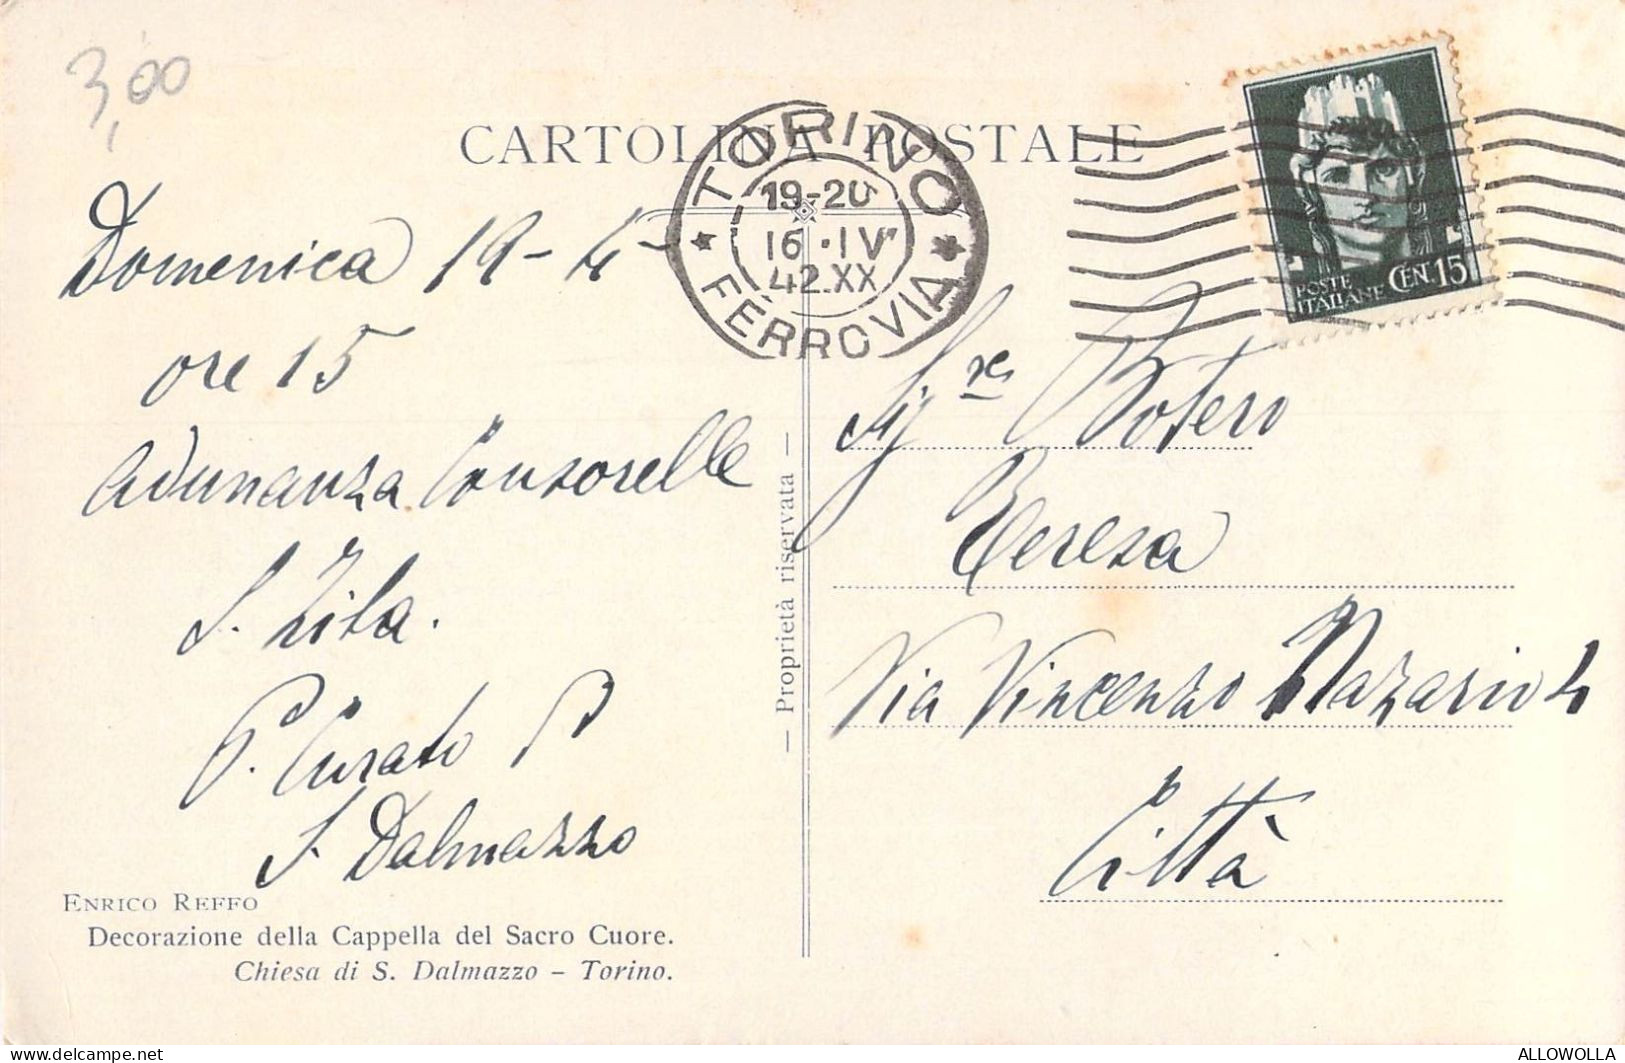 3,00
CARTOLINA POSTALE
TORINO
19-20
16.IV
42.XX
FERROVIA
POSTE
ITALIANE CEN.15
Domenica 19-4-
ore 15
Adunanza Consorelle
S. Zita.
P. Curato
S. Dalmazzo
— Proprietà riservata —
Sig.ra Botero
Teresa
Via Vincenzo Nazario
Città
ENRICO REFFO
Decorazione della Cappella del Sacro Cuore.
Chiesa di S. Dalmazzo – Torino.
delcampe.net
ALLOWOLLA